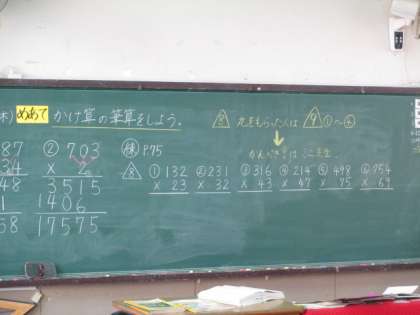 木)
めあて
かけ算の筆算をしよう。
87
34
48
58
② 703
× 2
3515
1406
17575
練 P75
8
① 132
× 23
② 231
× 32
③ 316
× 43
④ 214
× 47
⑤ 498
× 75
⑥ 754
× 69
8 丸をもらった人は 9 ①〜④